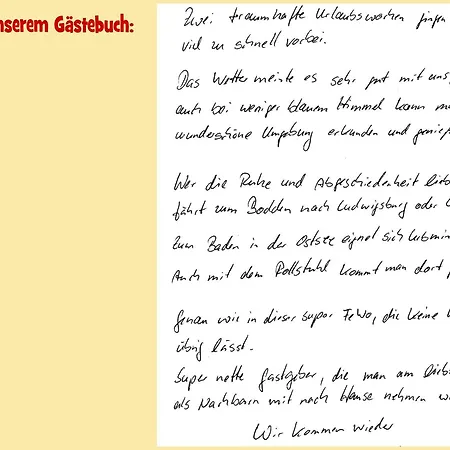 nserem Gästebuch:
Zwei traumhafte Urlaubswochen gingen
viel zu schnell vorbei.
Das Wetter meinte es sehr gut mit uns,
auch bei weniger blauem Himmel kann m
wunderschöne Umgebung erkunden und genieß
Wer die Ruhe und Abgeschiedenheit lieb
fährt zum Bodden nach Ludwigsburg oder
Zum Baden in der Ostsee eignet sich Lubmin
Auch mit dem Rollstuhl kommt man dort
Genau wie in dieser super FeWo, die keine
übrig lässt.
Super nette Gastgeber, die man am liebs
als Nachbarn mit nach Hause nehmen w
Wir kommen wieder